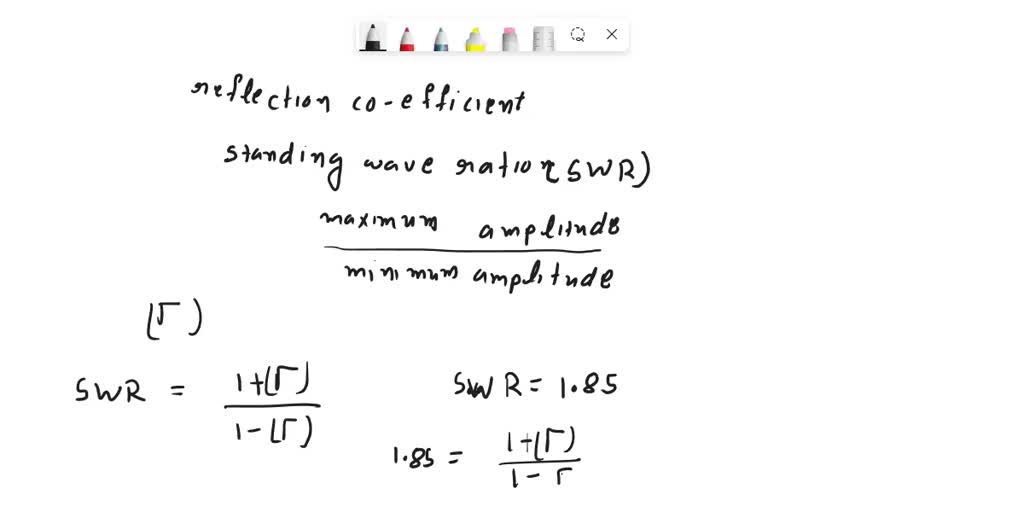 reflection co-efficient
standing wave ratio (SWR)
maximum amplitude
minimum amplitude
(Γ)
SWR = 1+(Γ) / 1-(Γ)
SWR = 1.85
1.85 = 1+(Γ) / 1-Γ